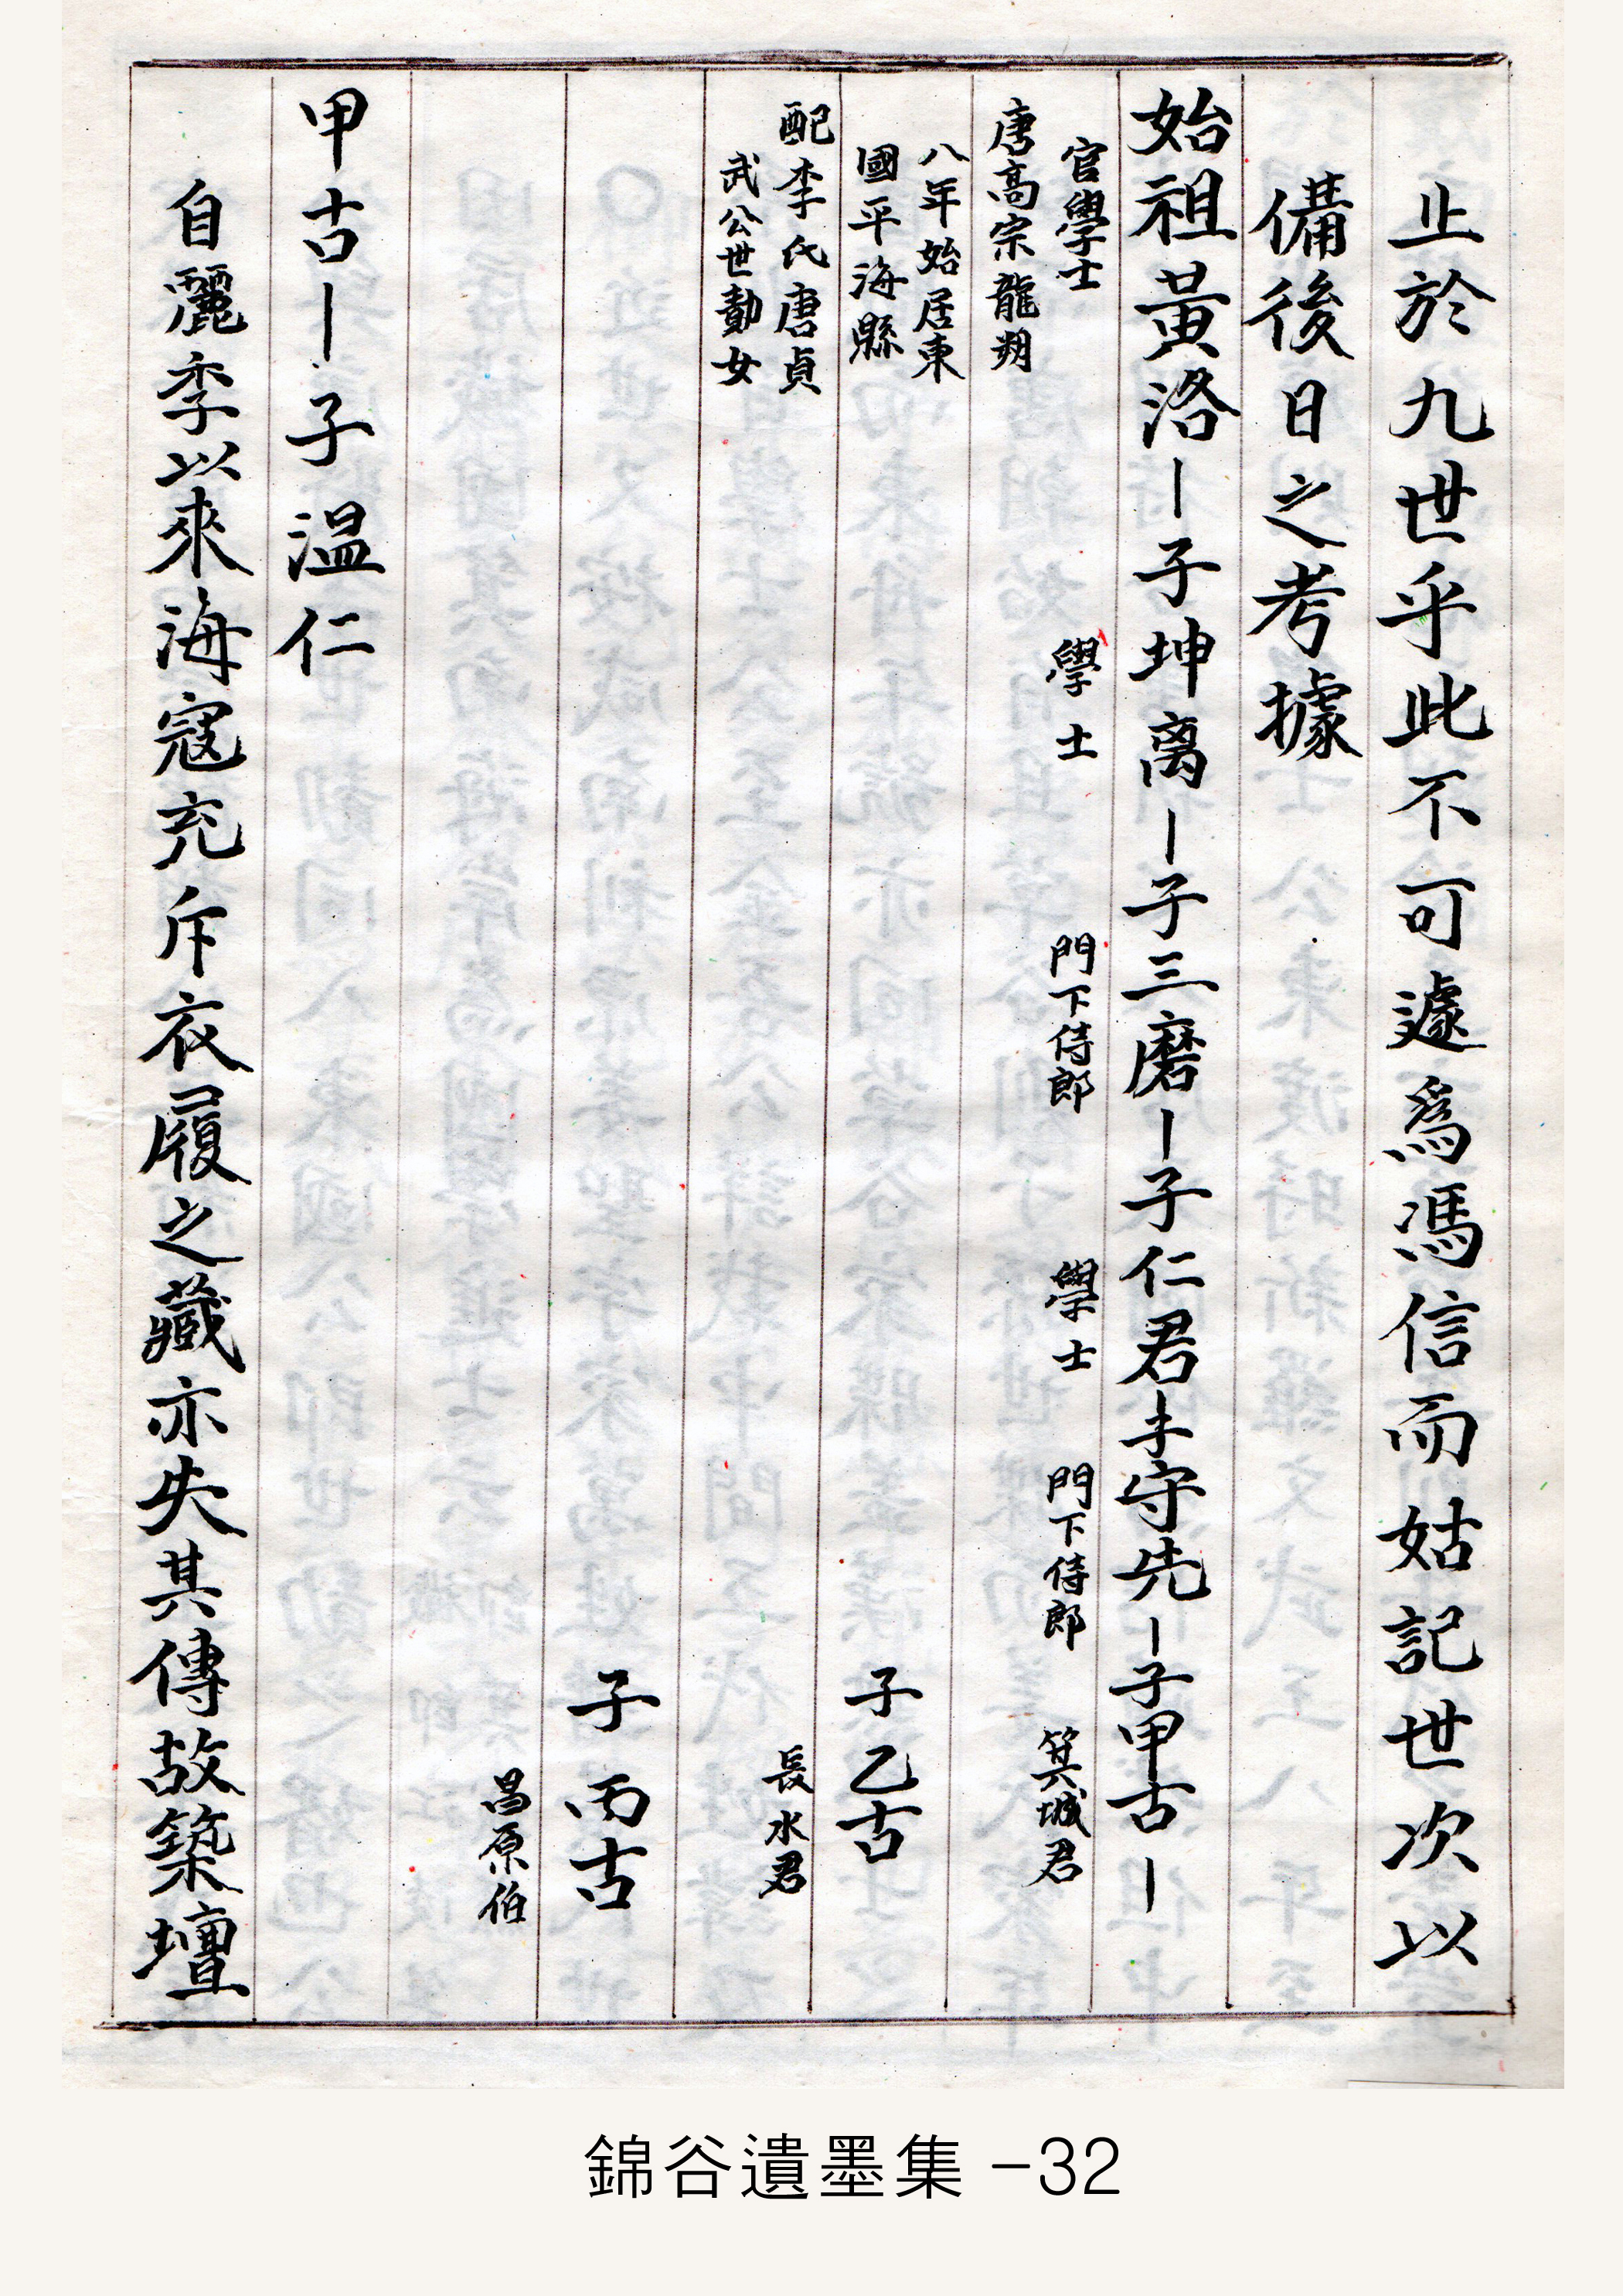 止於九世乎此不可遽爲馮信而姑記世次以
備後日之考據
始祖黃洛ー子坤离ー子三磨ー子仁君ー子守先ー子甲古ー
官學士
學士
門下侍郎
學士
門下侍郎
箕城君
唐高宗龍朔
八年始居東
國平海縣
子乙古
配李氏唐貞
長水君
武公世勣女
子丙古
昌原伯
甲古ー子溫仁
自麗季以來海寇充斥衣履之藏亦失其傳故築壇
錦谷遺墨集 -32